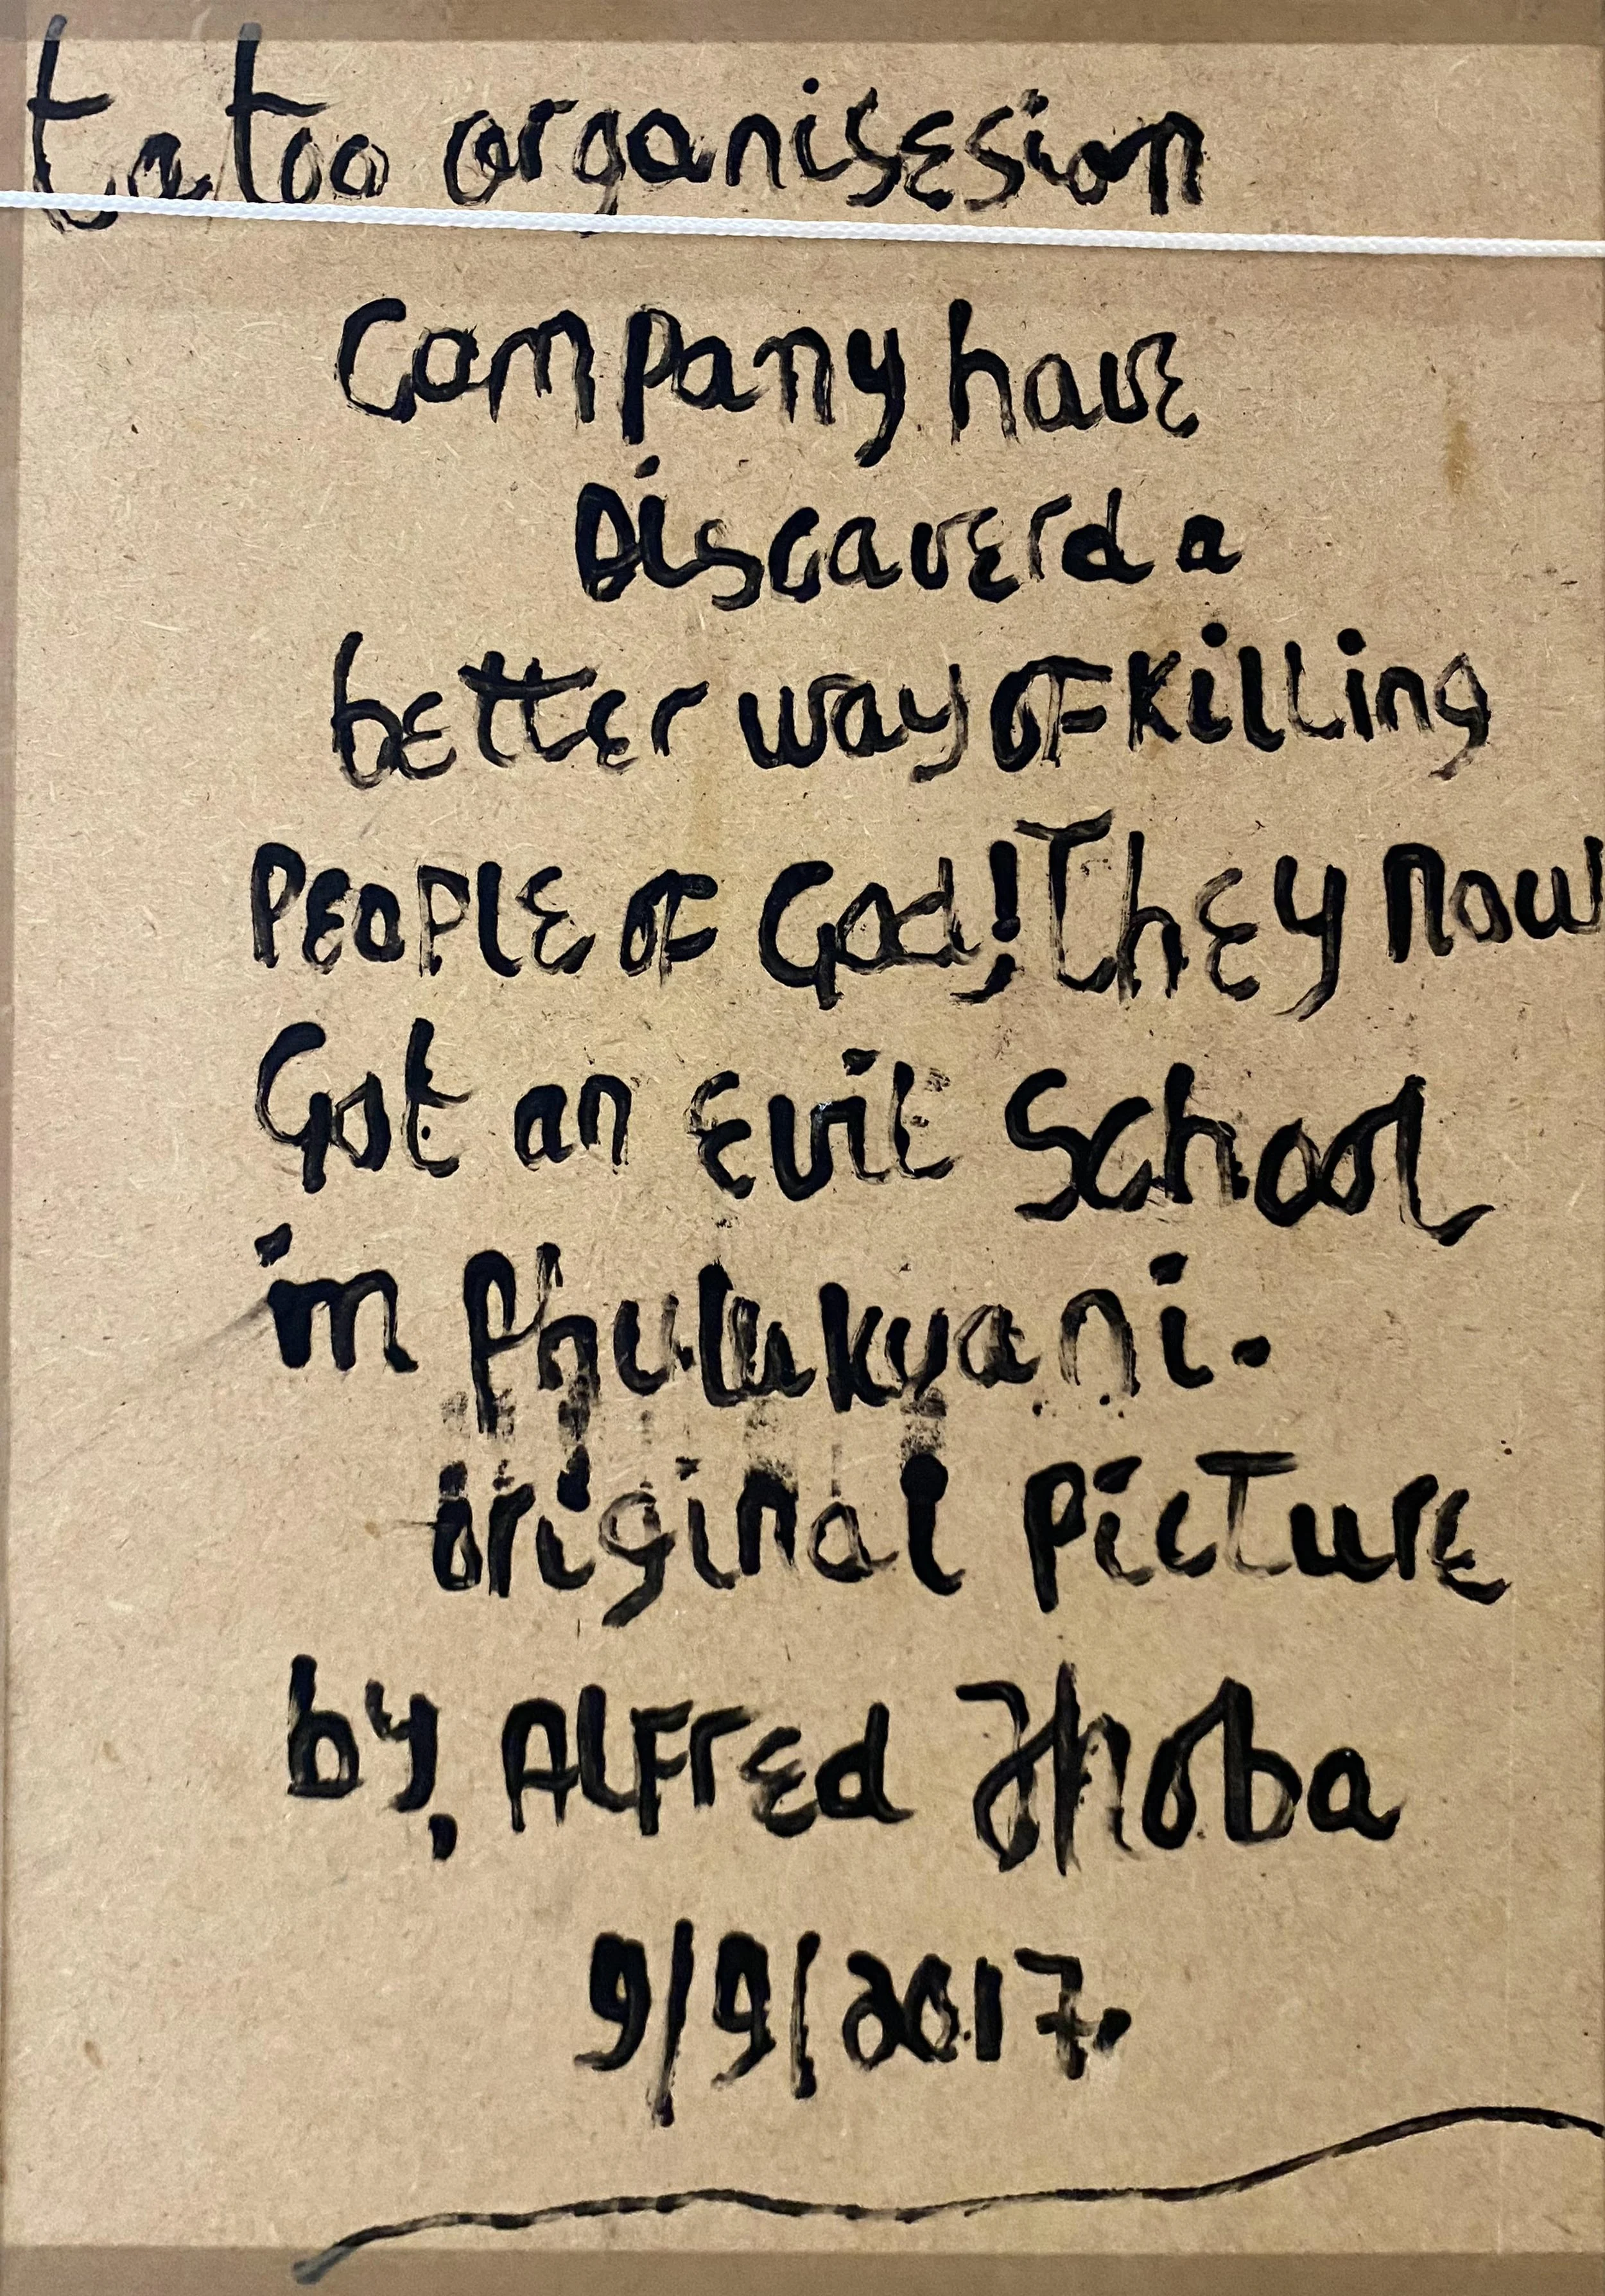 tatoo organisesion
Company have
Discaverd a
better way of killing
PEOPLE OF God! They now
Got an Evil School
in Phulukuani.
original Picture
by, AlFred thoba
9/9/2017.